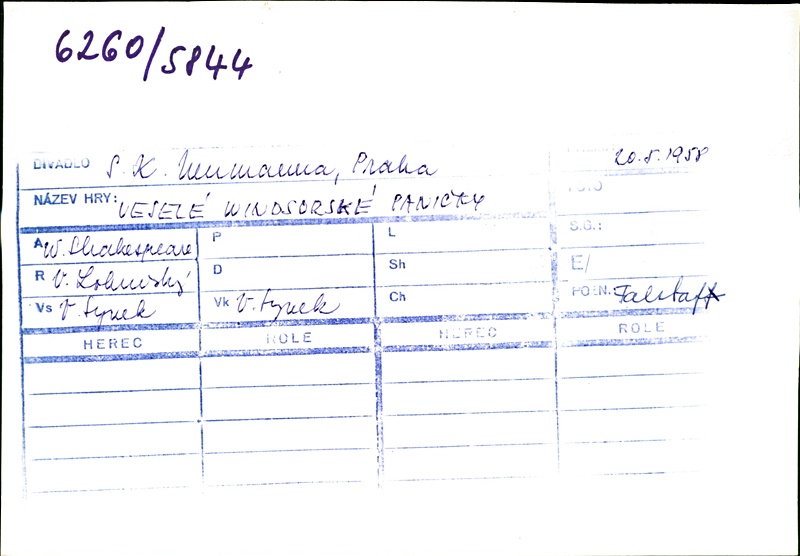 6260/5844
DIVADLO S. K. Neumanna, Praha 20.5.1958
NÁZEV HRY: VESELÉ WINDSORSKÉ PANIČKY
A W. Shakespeare P L S.G.:
R V. Lohniský D Sh E/
Vs V. Synek Vk V. Synek Ch POZN. Falstaff
HEREC ROLE HEREC ROLE